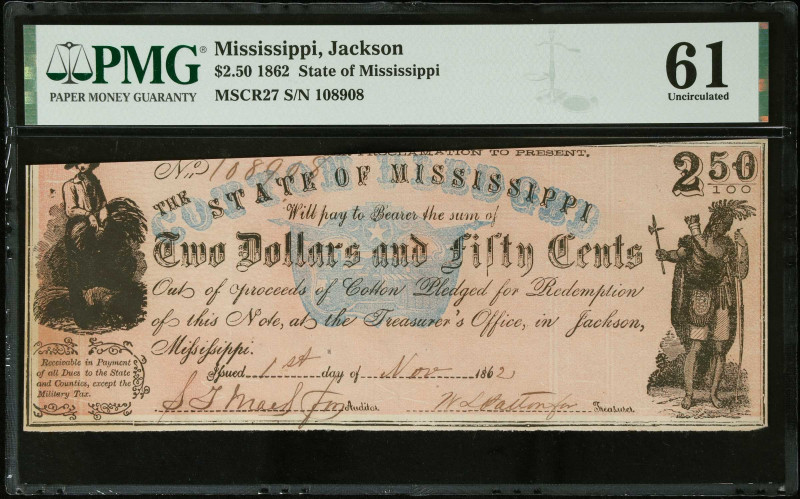 PMG®
PAPER MONEY GUARANTY
Mississippi, Jackson
$2.50 1862 State of Mississippi
MSCR27 S/N 108908
61
Uncirculated
PROCLAMATION TO PRESENT.
No 108908
COTTON PLEDGED
THE STATE OF MISSISSIPPI
2 50/100
Will pay to Bearer the sum of
Two Dollars and Fifty Cents
Out of proceeds of Cotton Pledged for Redemption
of this Note, at the Treasurer's Office, in Jackson,
Mississippi.
Receivable in Payment
of all Dues to the State
and Counties, except the
Military Tax.
Issued 1st day of Nov 1862
for Auditor. for Treasurer.